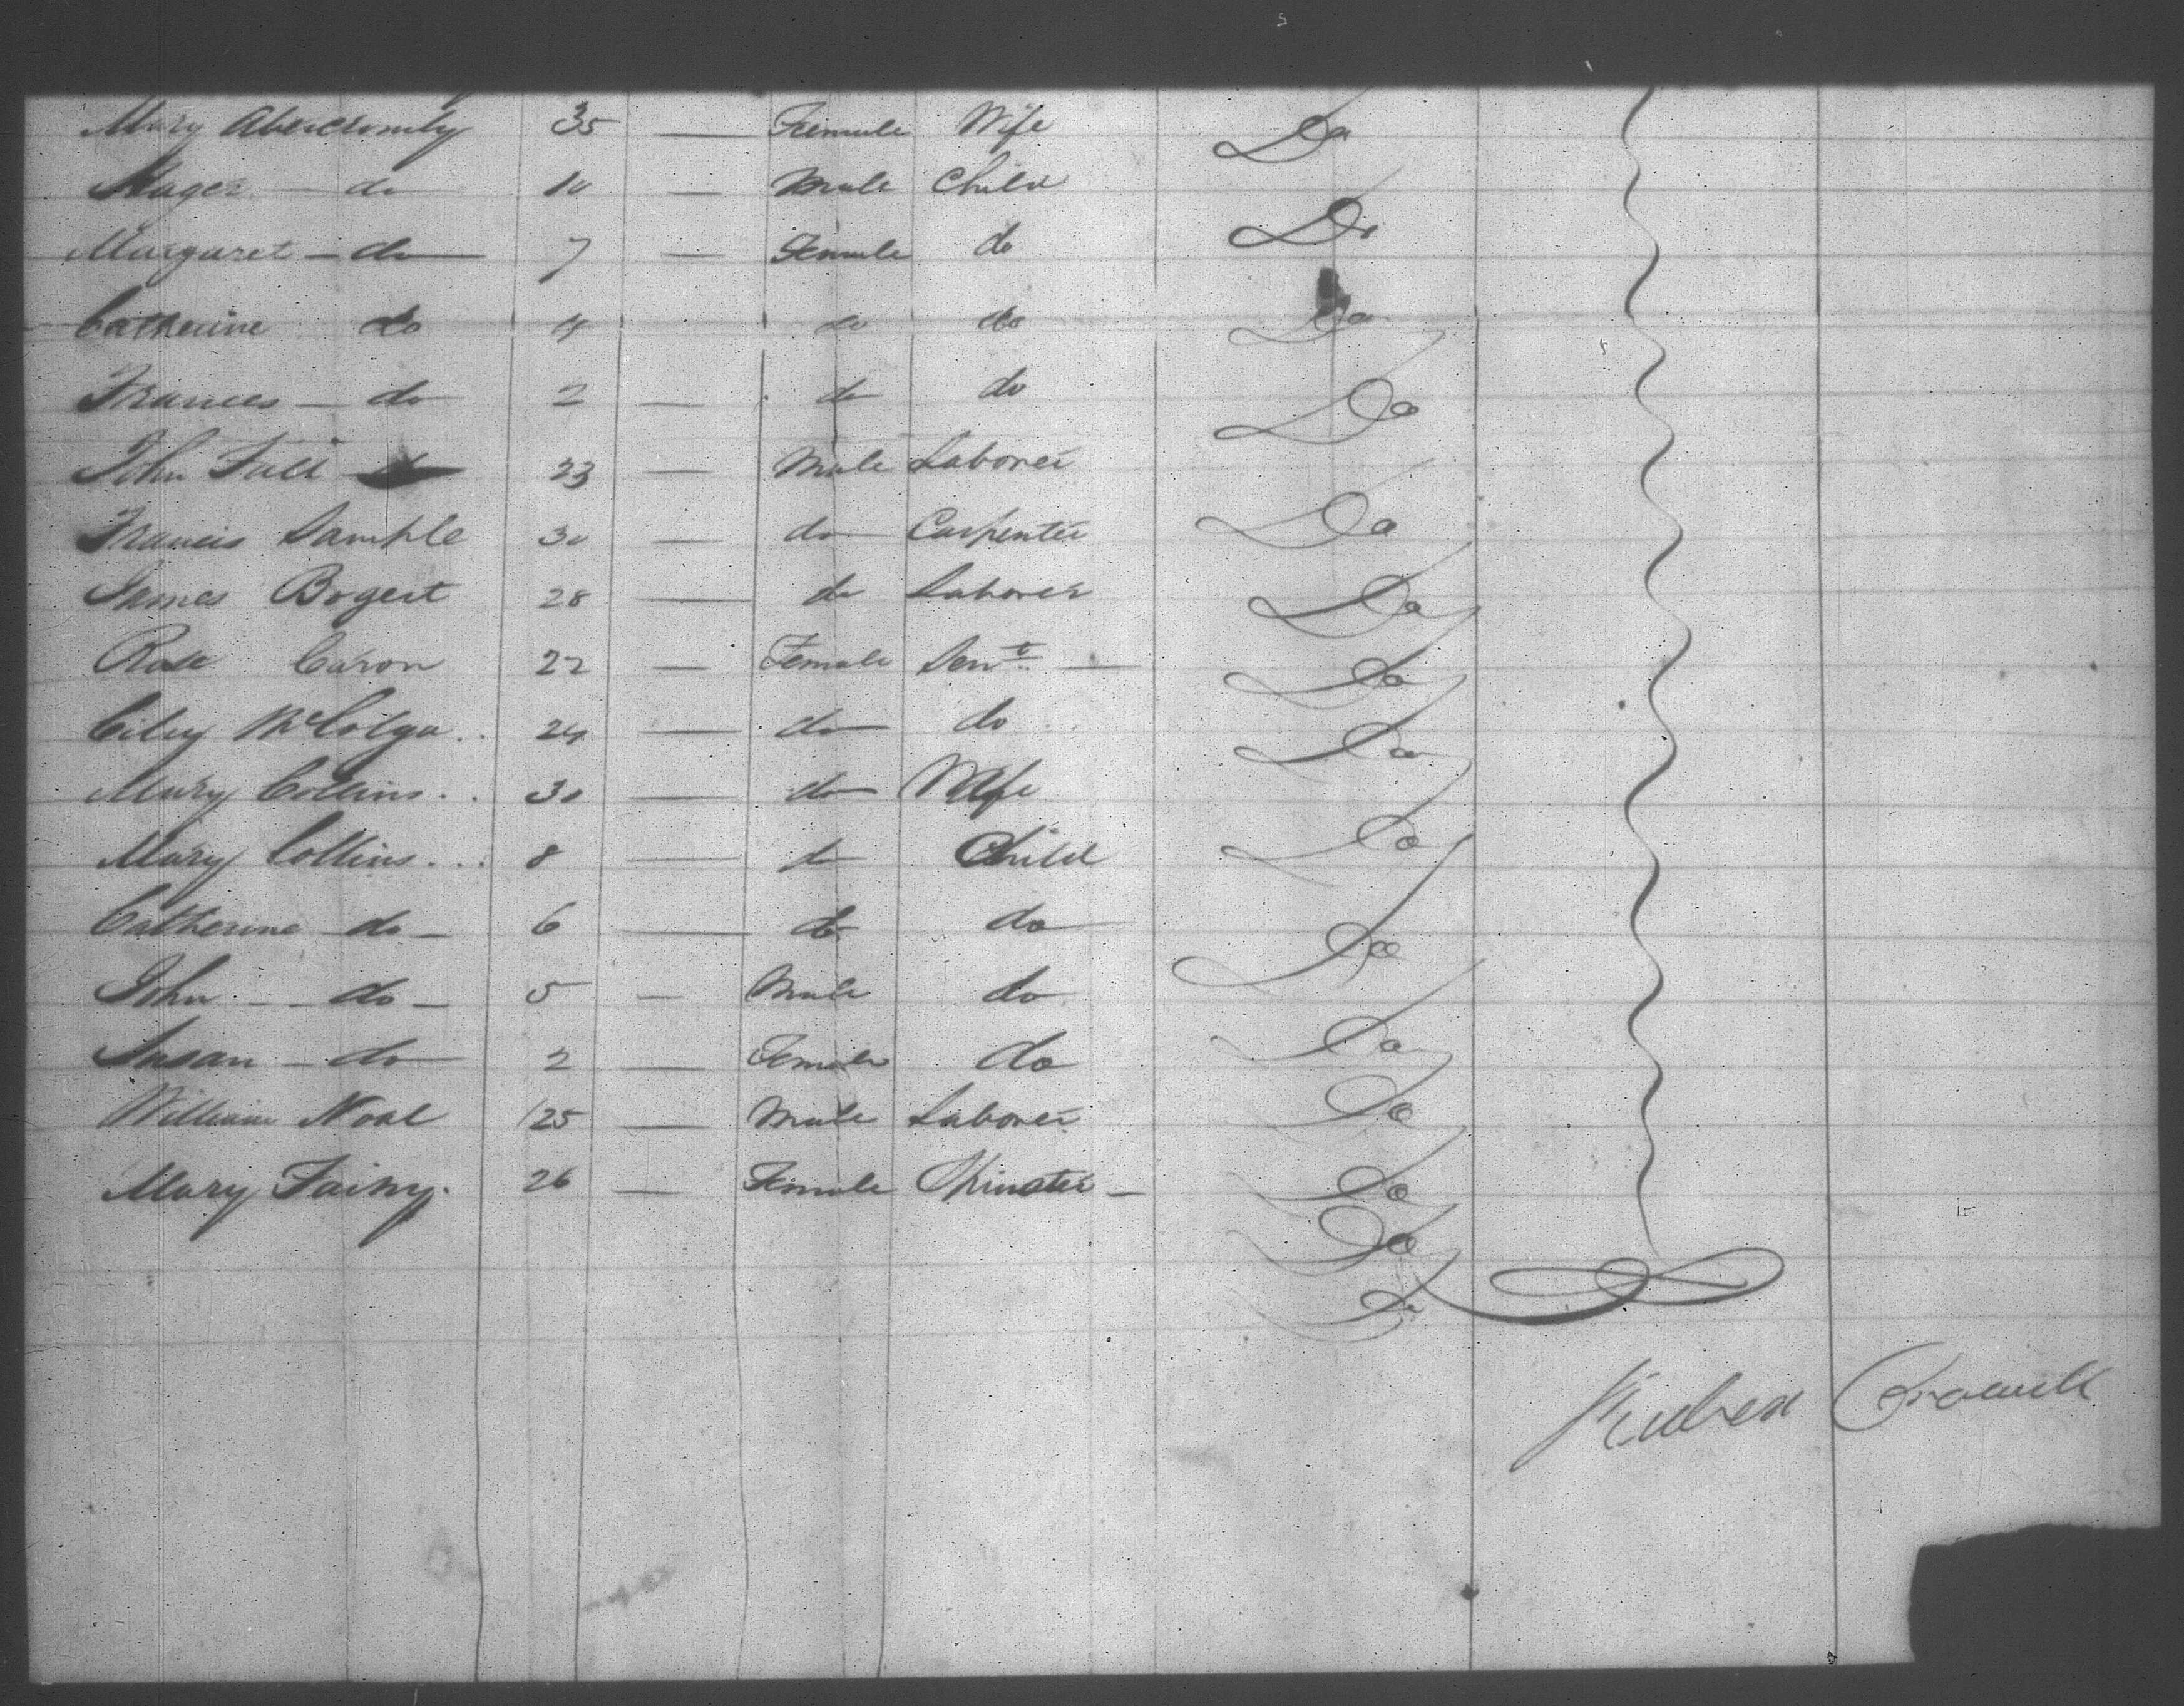 Mary Abercromby 35 — Female Wife Do
Hager — do 10 — Male Child Do
Margaret — do 7 — Female do Do
Catherine do 4 do do Do
Frances — do 2 — do do Do
John 23 — Male Laborer Do
Francis Sample 30 — do Carpenter Do
James Bogert 28 — do Laborer Do
Rose Caron 22 — Female Servt — Do
Cily McColga.. 24 — do do Do
Mary Collins.. 30 — do Wife Do
Mary Collins... 8 — do Child Do
Catherine do — 6 — do do Do
John — do — 5 — Male do Do
Susan — do 2 — Female do Do
William Noal 25 — Male Laborer Do
Mary 26 — Female Spinster — Do
Reuben Cromwell